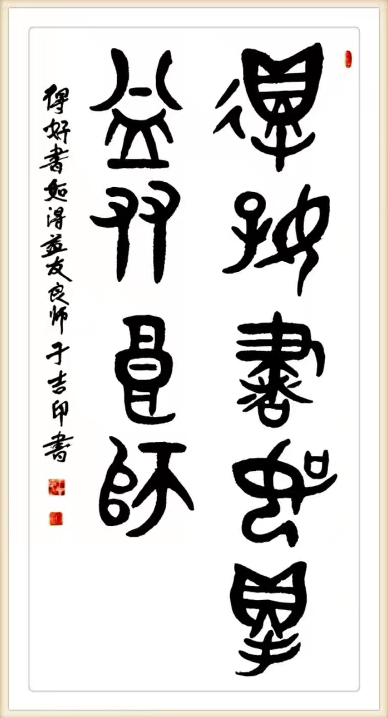 得好書如得
益友良师
得好書如得益友良师 于吉印書